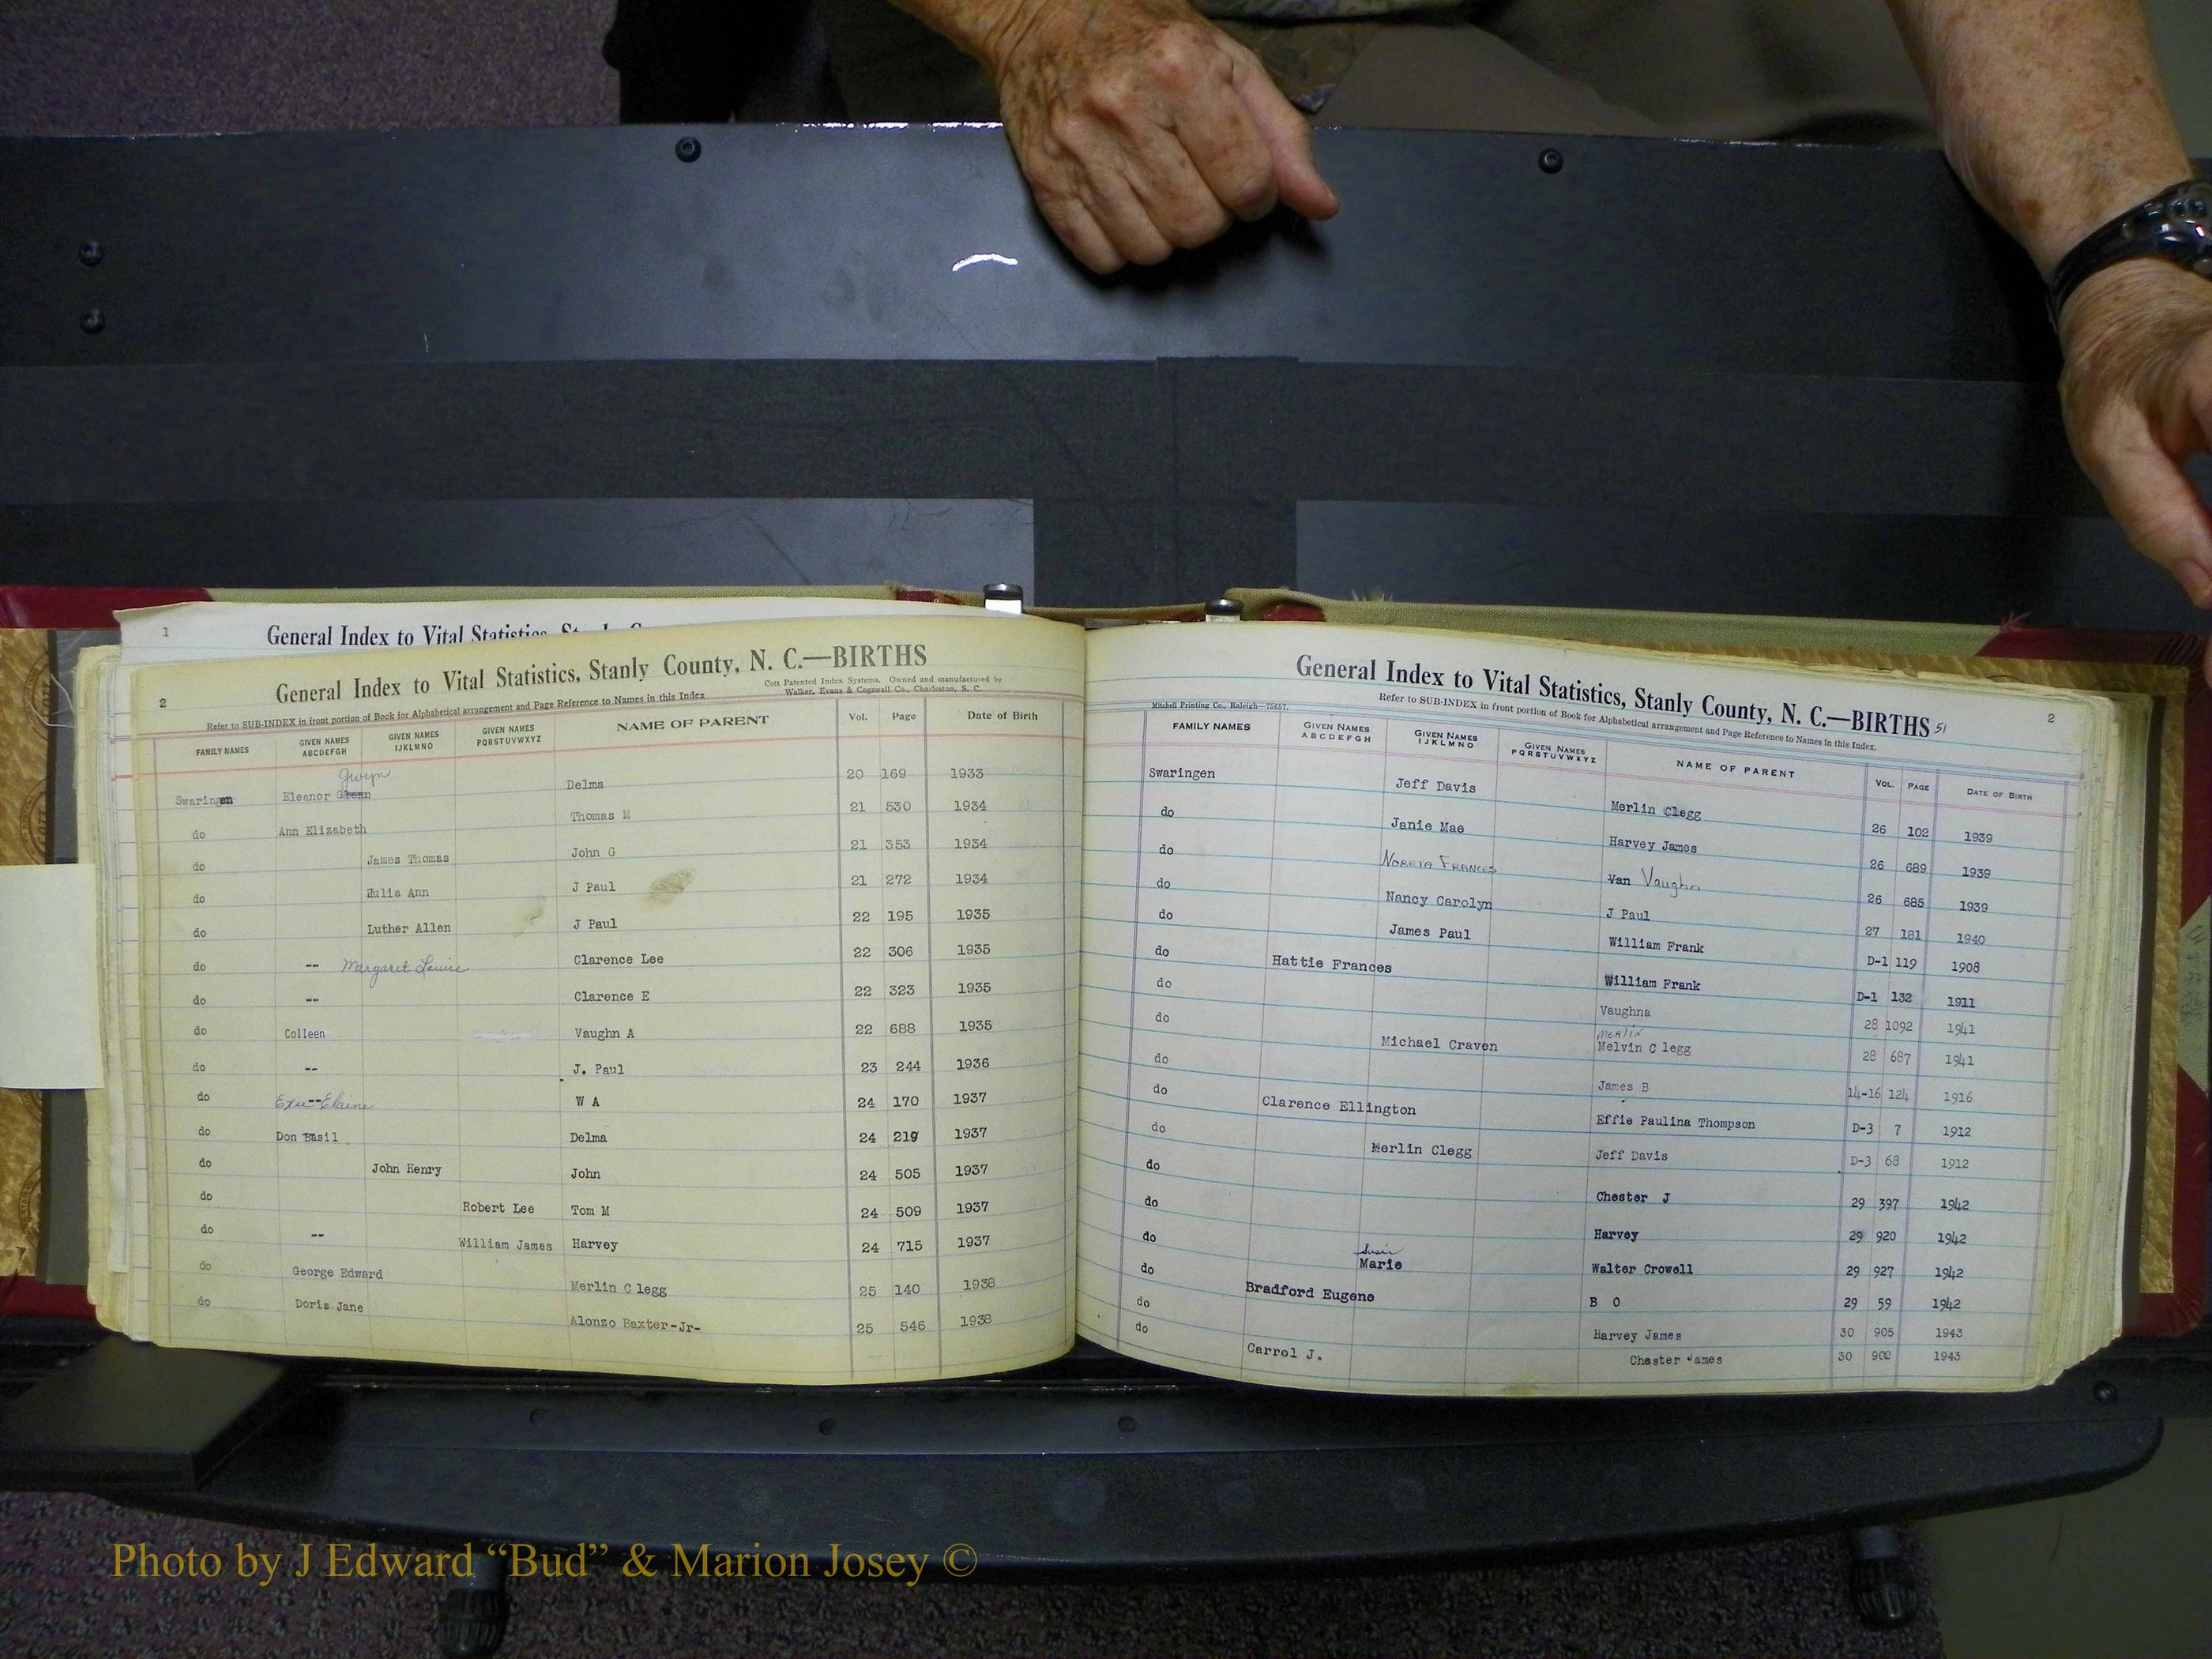 1
General Index to Vital Statistics, St
2
General Index to Vital Statistics, Stanly County, N. C.—BIRTHS
Cott Patented Index Systems. Owned and manufactured by
Walker, Evans & Cogswell Co., Charleston, S. C.
Refer to SUB-INDEX in front portion of Book for Alphabetical arrangement and Page Reference to Names in this Index
FAMILY NAMES GIVEN NAMES ABCDEFGH GIVEN NAMES IJKLMNO GIVEN NAMES PQRSTUVWXYZ NAME OF PARENT Vol. Page Date of Birth
Gwyn
Swaringen Eleanor Glenn Delma 20 169 1933
do Ann Elizabeth Thomas M 21 530 1934
do James Thomas John G 21 353 1934
do Julia Ann J Paul 21 272 1934
do Luther Allen J Paul 22 195 1935
do -- Margaret Louise Clarence Lee 22 306 1935
do -- Clarence E 22 323 1935
do Colleen Vaughn A 22 688 1935
do -- J. Paul 23 244 1936
do -- Elaine W A 24 170 1937
do Don Basil Delma 24 219 1937
do John Henry John 24 505 1937
do Robert Lee Tom M 24 509 1937
do -- William James Harvey 24 715 1937
do George Edward Merlin C legg 25 140 1938
do Doris Jane Alonzo Baxter-Jr- 25 546 1938
General Index to Vital Statistics, Stanly County, N. C.—BIRTHS 51
2
Mitchell Printing Co., Raleigh—75657.
Refer to SUB-INDEX in front portion of Book for Alphabetical arrangement and Page Reference to Names in this Index.
FAMILY NAMES GIVEN NAMES ABCDEFGH GIVEN NAMES IJKLMNO GIVEN NAMES PQRSTUVWXYZ NAME OF PARENT VOL. PAGE DATE OF BIRTH
Swaringen Jeff Davis Merlin Clegg 26 102 1939
do Janie Mae Harvey James 26 689 1939
do Noreta Frances Van Vaughn 26 685 1939
do Nancy Carolyn J Paul 27 181 1940
do James Paul William Frank D-1 119 1908
do Hattie Frances William Frank D-1 132 1911
do Vaughna 28 1092 1941
Merlin
do Michael Craven Melvin C legg 28 687 1941
do James B 14-16 124 1916
do Clarence Ellington Effie Paulina Thompson D-3 7 1912
do Merlin Clegg Jeff Davis D-3 68 1912
do Chester J 29 397 1942
do Harvey 29 920 1942
Susie
do Marie Walter Crowell 29 927 1942
do Bradford Eugene B O 29 59 1942
do Harvey James 30 905 1943
do Carrol J. Chester James 30 902 1943
Photo by J Edward “Bud” & Marion Josey ©